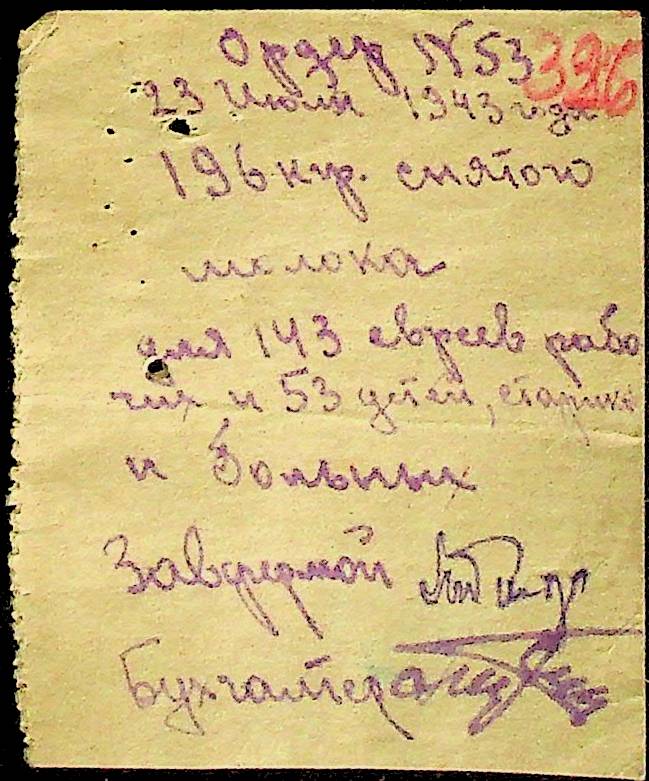 Ордер N 53 326
23 июля 1943 года
196 кр. снятого
молока
для 143 евреев рабо
чих и 53 детей, старико
и больных
Завфермой
Бухгалтера